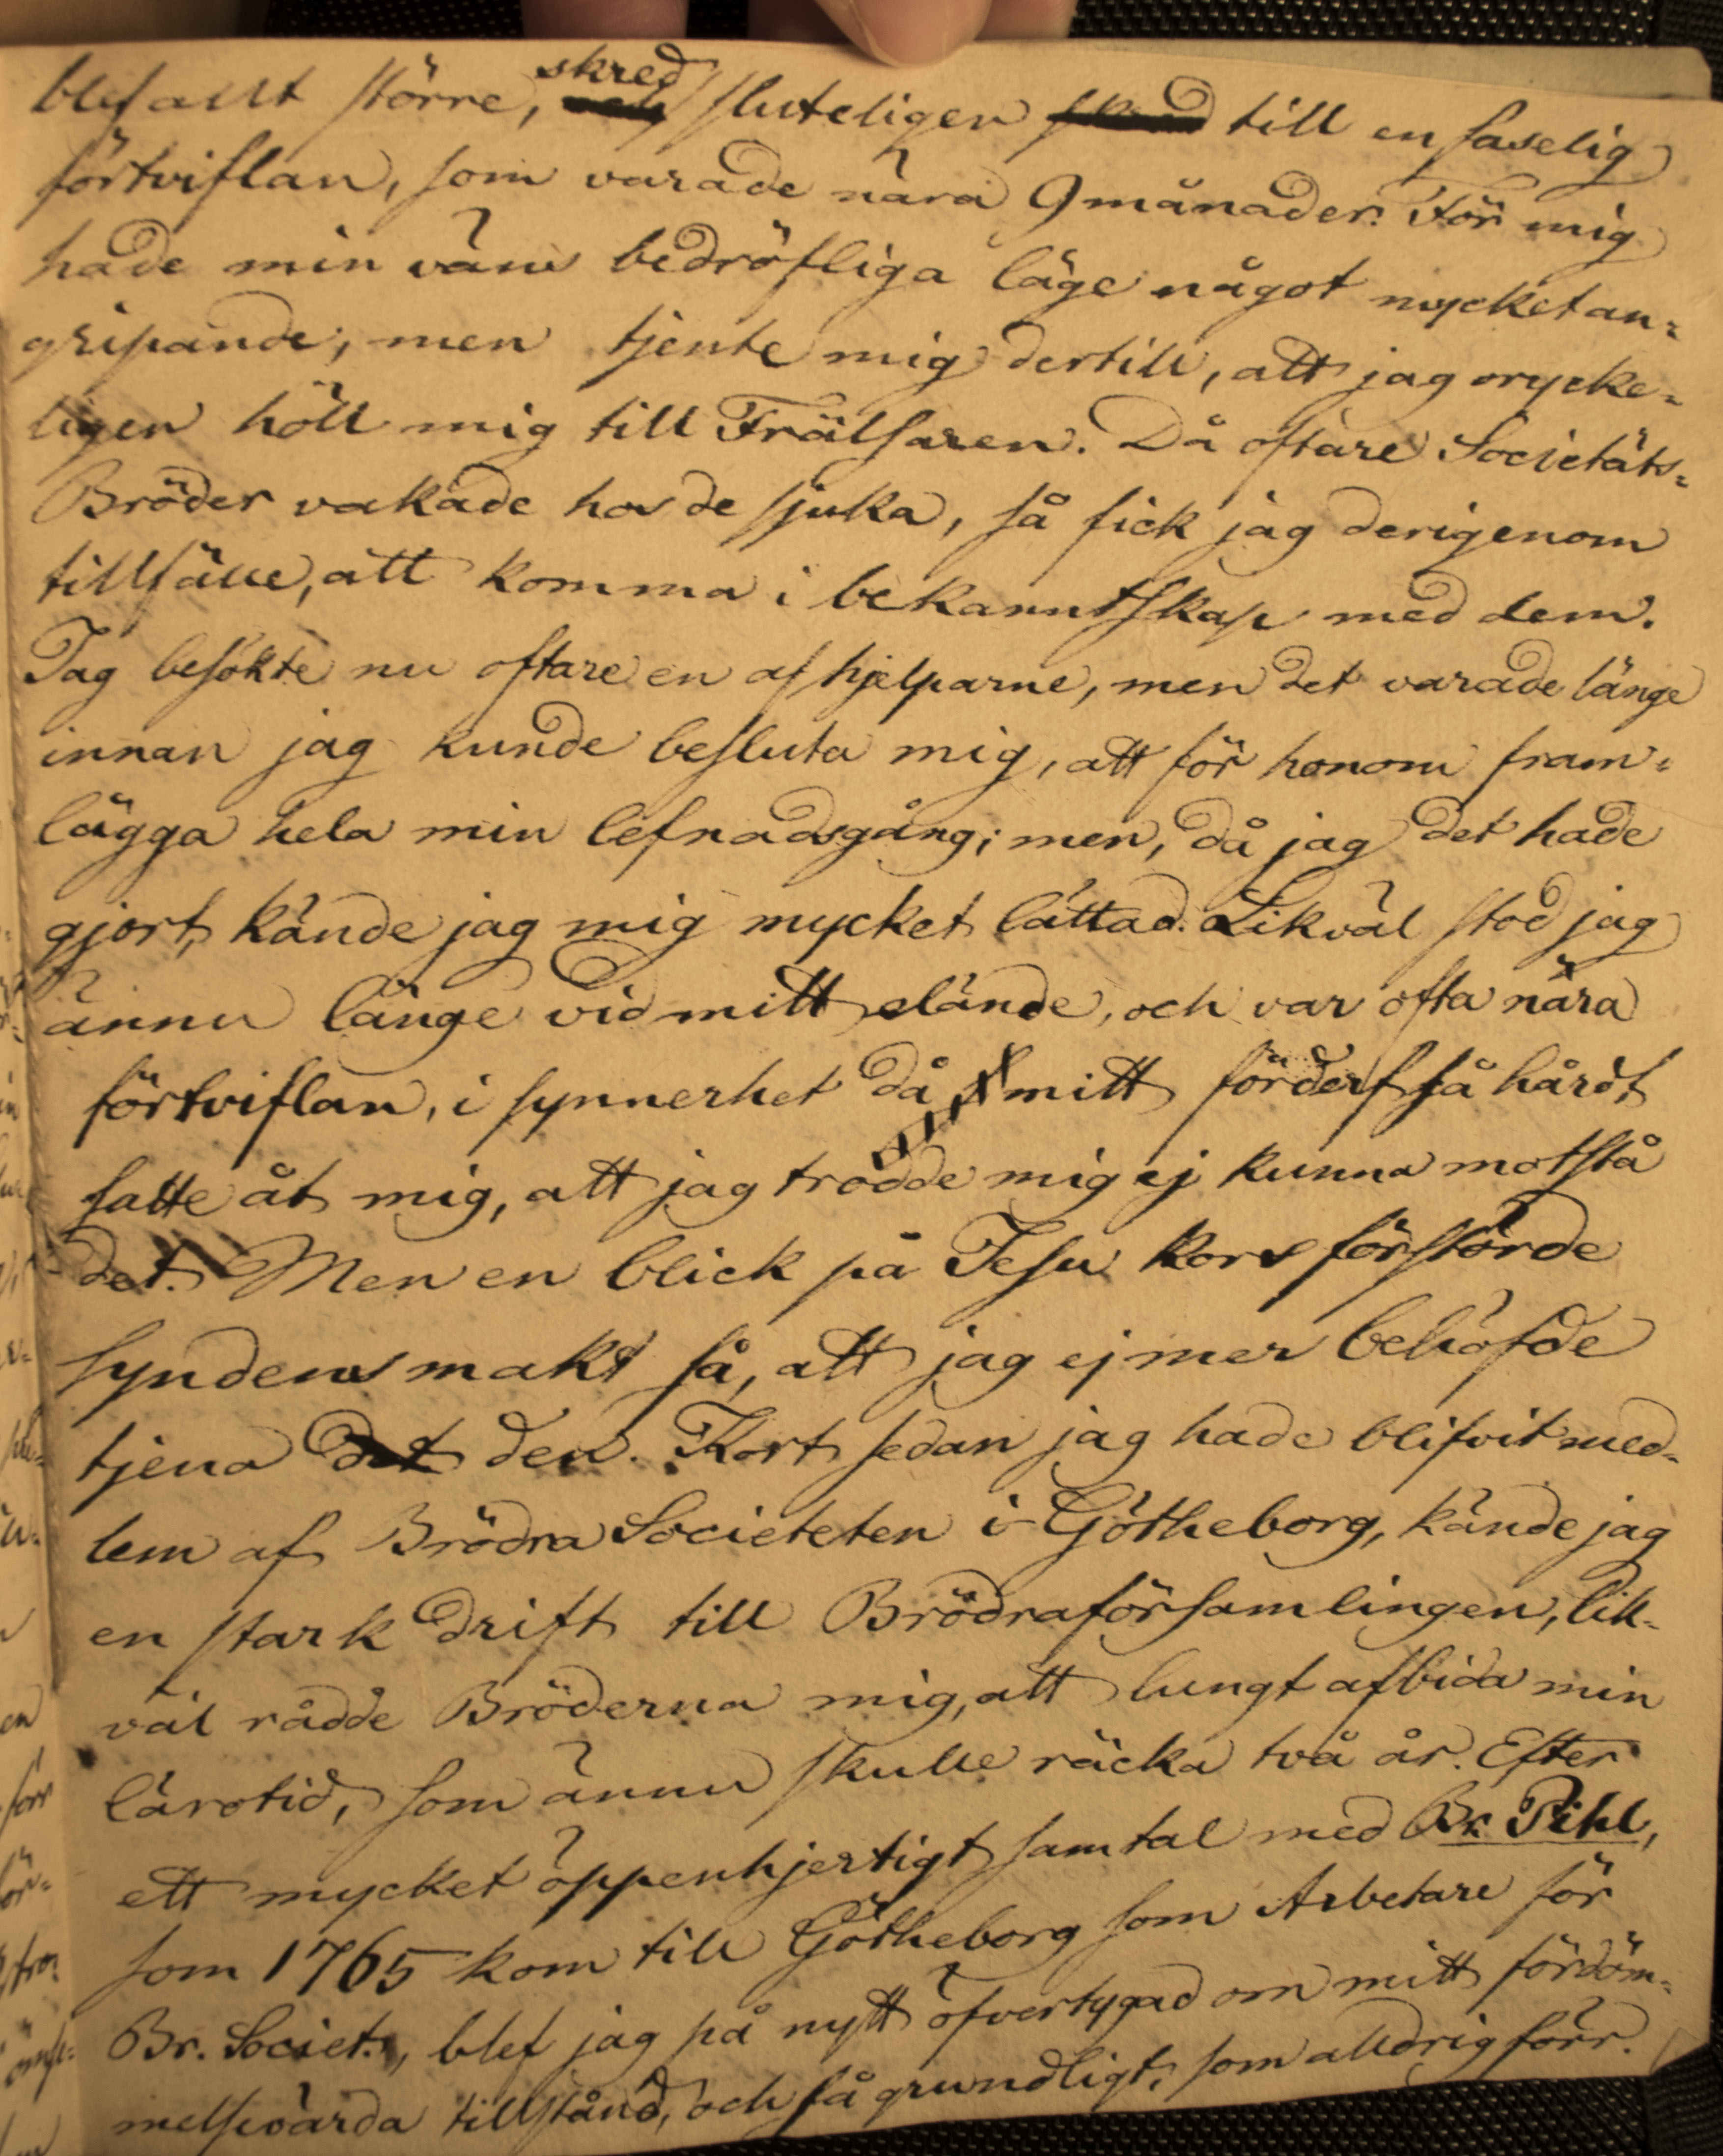 blef allt större, skred sluteligen till en faselig
förtviflan, som varade nära 9 månader. För mig
hade min väns bedröfliga läge något mycket an=
gripande, men tjente mig dertill, att jag orycke=
ligen höll mig till Frälsaren. Då oftare Societäts=
Bröder vakade hos de sjuka, så fick jag derigenom
tillfälle, att komma i bekanntskap med dem.
Jag besökte nu oftare en af hjelparne, men det varade länge
innan jag kunde besluta mig, att för honom fram=
lägga hela min lefnadsgång; men, då jag det hade
gjort, kände jag mig mycket lättad. Likväl stod jag
ännu länge vid mitt elände, och var ofta nära
förtviflan, i synnerhet då mitt förderf så hårdt
satte åt mig, att jag trodde mig ej kunna motstå
det. Men en blick på Jesu kors förstörde
syndens makt så, att jag ej mer behöfde
tjena det den. Kort sedan jag hade blifvit med=
lem af Brödra Societeten i Götheborg, kände jag
en stark drift till Brödraförsamlingen, lik=
väl rådde Bröderna mig, att lungt afbida min
lärotid, som ännu skulle räcka två år. Efter
ett mycket öppenhjertigt samtal med Br. Pihl,
som 1765 kom till Götheborg som Arbetare för
Br. Societ., blef jag på nytt öfvertygad om mitt fördöm=
melsevärda tillstånd, och så grundligt, som alldrig förr.